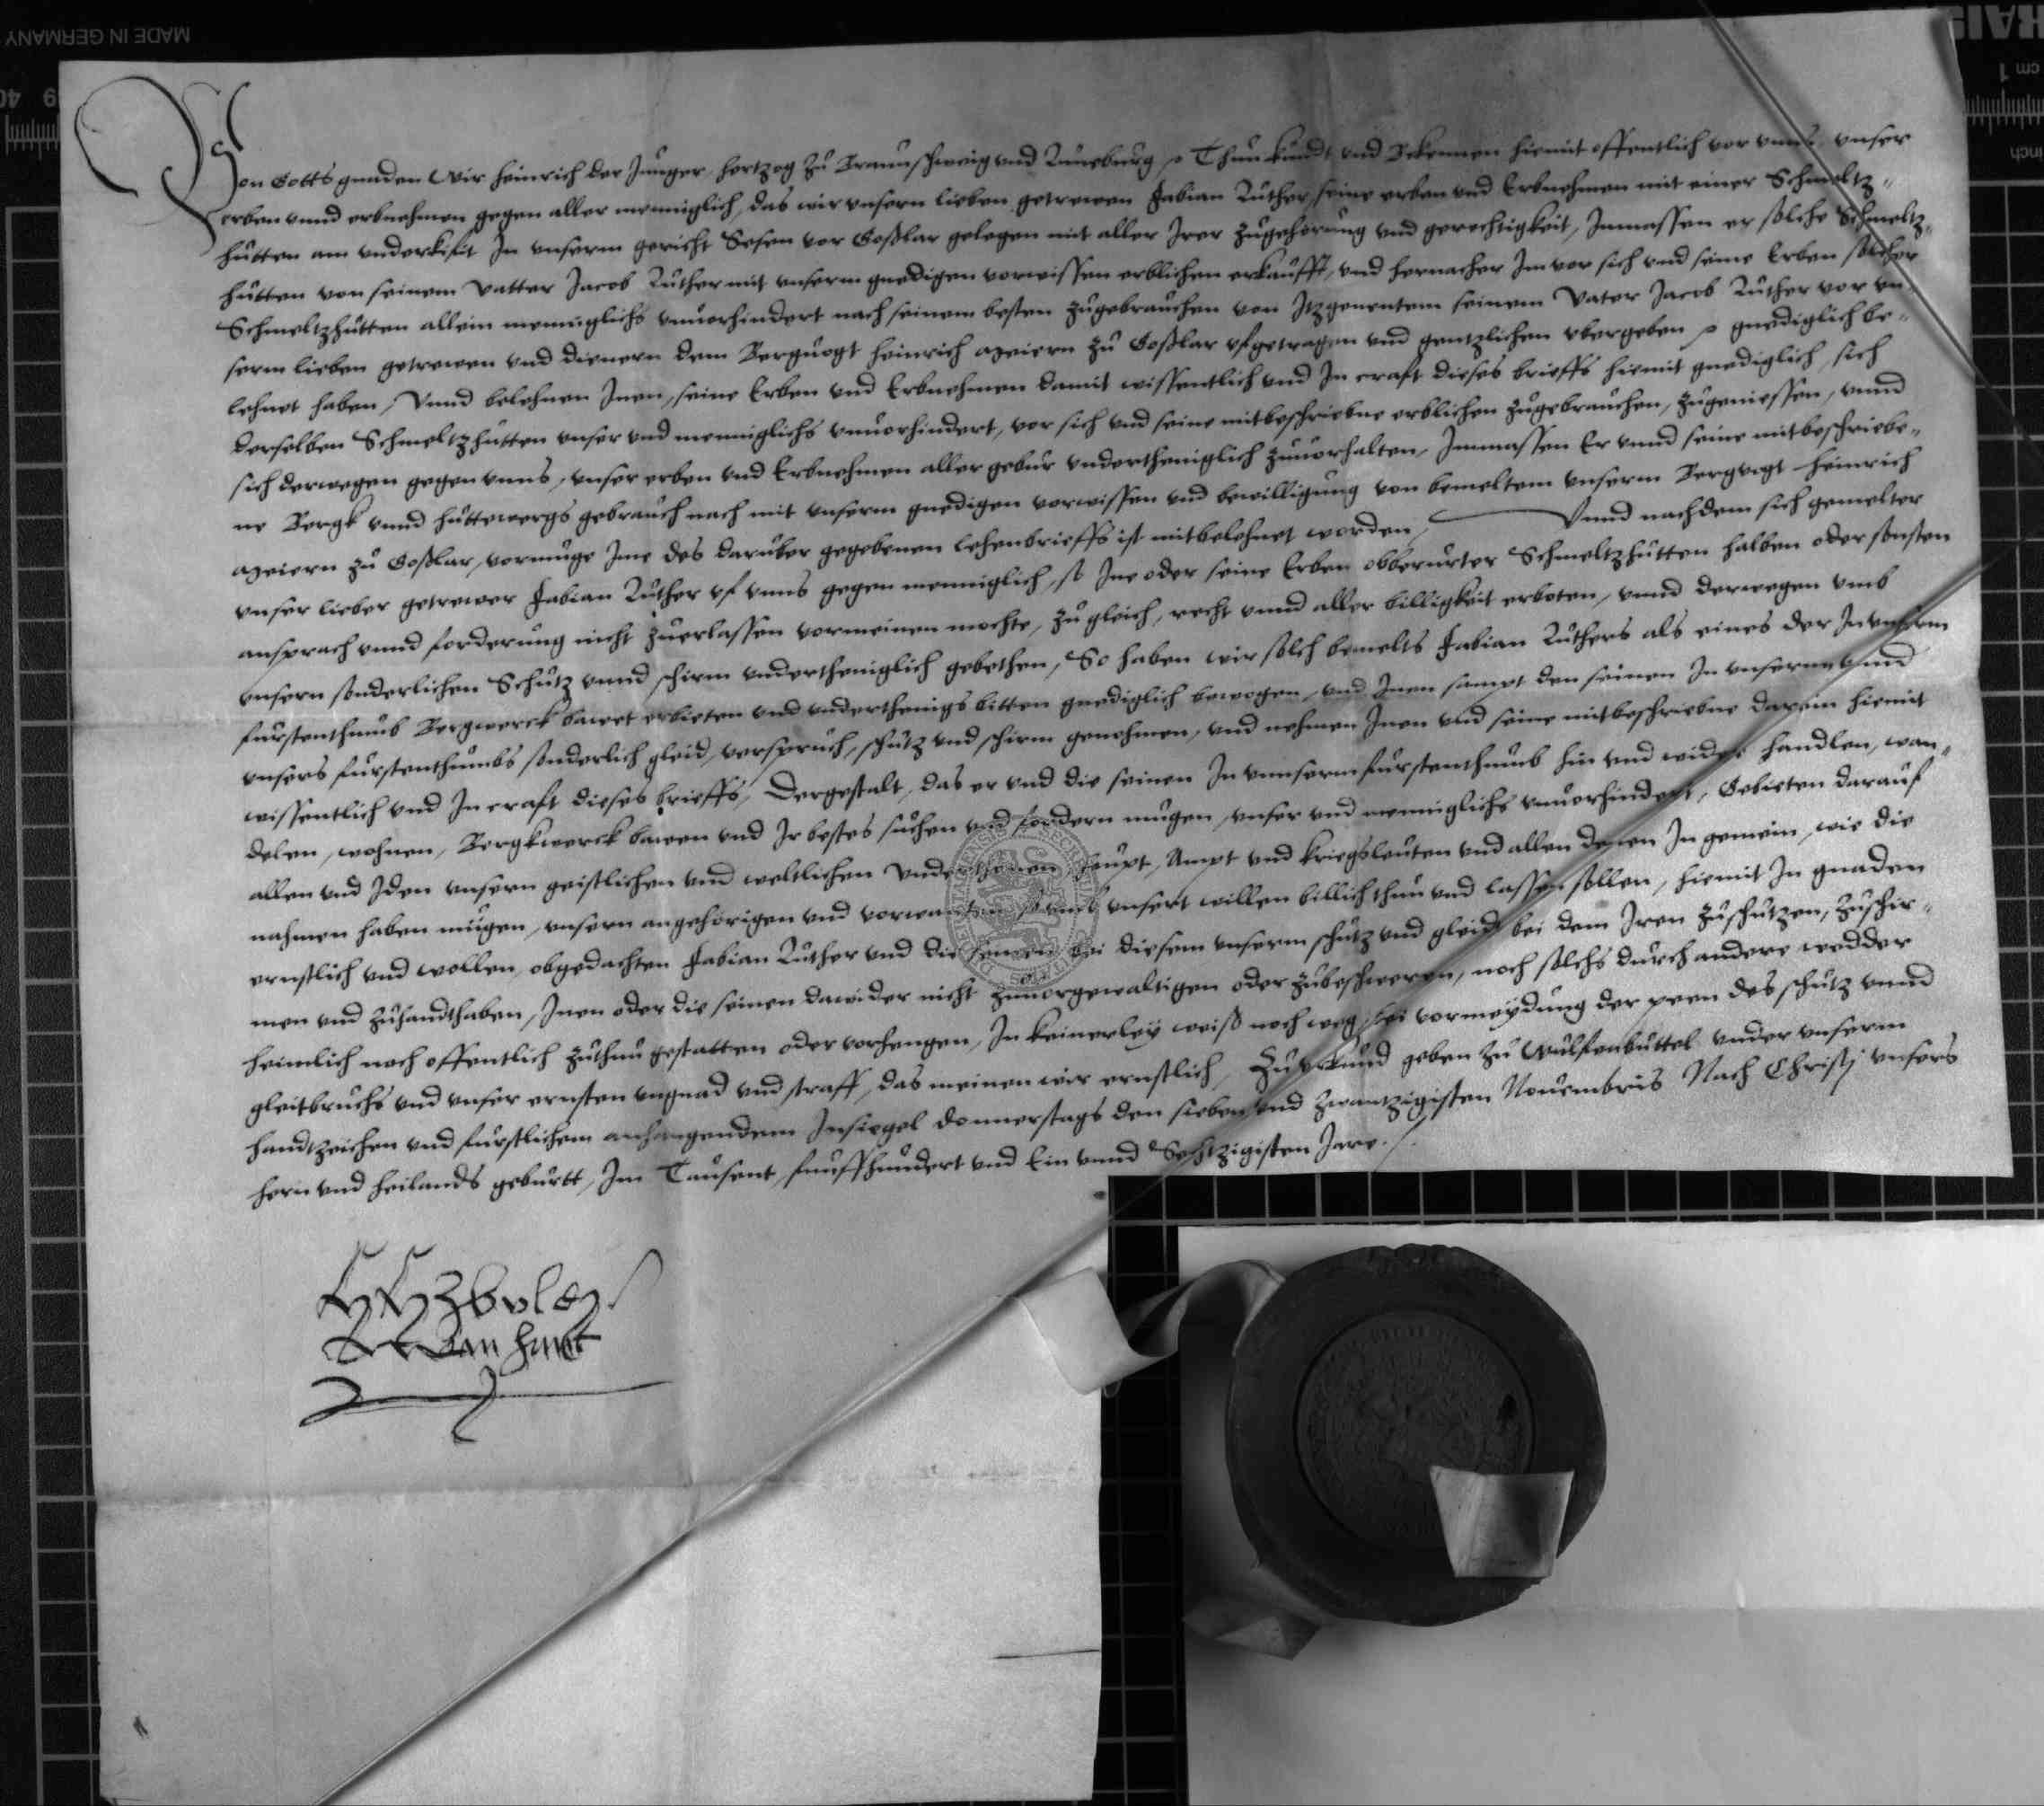 Von Gotts gnaden Wir Heinrich der Junger Hertzog zů Braunschweig und Luneburg Thun kundt und Bekennen hiemit offentlich vor unns, unser
erben unnd erbnehmen gegen aller menniglich, das wir unsern lieben getrewen Fabian Luther, seine erben und Erbnehmen mit einer Schmeltz-
hůtten am In unserm gericht Sesen vor Goßlar gelegen mit aller Irer zůgehorung und gerechtigkeit, Inmassen er solche Schmeltz-
hůtten von seinem Vatter Jacob Luther mit unserm gnedigen vorwissen erblichen erkaufft, und hernacher Im vor sich und seine Erben solcher
Schmeltzhůtten allein menniglichs unuorhindert nach seinem besten zůgebrauchen von Itzgenentem seinem Vater Jacob Luther vor un-
serm lieben getrewen und dienern dem Berguogt Heinrich zů Goßlar ufgetragen und gentzlichen ubergeben gnediglich be-
lehnet haben, Unnd belehnen Inen, seine Erben und Erbnehmen damit wissentlich und In craft dieses brieffs hiemit gnediglich, sich
derselben Schmeltzhůtten unser und menniglichs unuorhindert, vor sich und seine mitbeschriebne erblichen zůgebrauchen, zůgeniessen, unnd
sich derwegen gegen unns, unser erben und Erbnehmen aller gebůr undertheniglich zůuorhalten, Inmassen Er unnd seine mitbeschriebe-
ne Bergk unnd hůttewergs gebrauch nach mit unserm gnedigen vorwissen und bewilligung von bemeltem unserm Bergvogt Heinrich
zů Goßlar, vormůge Ime des darůber gegebenen lehenbrieffs ist mitbelehnet worden, Unnd nachdem sich gemelter
unser lieber getrewer Fabian Luther uf unns gegen menniglich, so Ine oder seine Erben obberurter Schmeltzhůtten halben oder sonsten
ansprach unnd forderung nicht zuerlassen vormeinen mochte, zů gleich, recht unnd aller billigkeit erboten, unnd derwegen umb
unsern sonderlichen Schůtz unnd schirm undertheniglich gebethen, So haben wir solch bemelts Fabian Luthers als eines der In unserm
furstenthumb Bergwerck bawet erbieten und underthenigs bitten gnediglich bewogen, und Inen sampt den seinen In unsern unnd
unsers furstenthumbs sonderlich gleid, verspruch, schutz und schirm genohmen, und nehmen Inen und seine mitbeschriebne darein hiemit
wissentlich und In craft dieses brieffs, Dergestalt, das er und die seinen In unnserm furstenthumb hin und wider handlen, wan-
delen, wohnen, Bergkwerck bawen und Ir bestes sůchen und fordern mugen, unser und menniglichs unuorhindert, Gebieten darauf
allen und Iden unsern geistlichen und weltlichen Underthanen, Haupt, Ampt und kriegsleuten und allen denen In gemein, wie die
nahmen haben mugen, unsern angehorigen und vorwanten so umb unsert willen billich thun und lassen sollen, hiemit In gnaden
ernstlich und wollen, obgedachten Fabian Luther und die seinen bei diesem unserm schutz und gleidt bei dem Iren zůschutzen, zůschir-
men und zůhandthaben, Inen oder die seinen dawider nicht zuuorgewaltigen oder zůbeschweren, noch solchs durch andere wedder
heimlich noch offentlich zůthun gestatten oder vorhengen, In keinerley weiß noch weg, bei vormeydung der peen des schutz unnd
gleitbruchs und unser ernsten ungnad und straff, das meinen wir ernstlich, Zu urkund geben zů Wulfenbuttel under unserm
handtzeichen und furstlichem anhangendem Insiegel donnerstags den sieben und zwantzigisten Nouembris Nach Christj unsers
hern und heilands geburtt, Im Tausent, funffhundert und Ein unnd Sechtzigisten Jare.
HHZBvLG